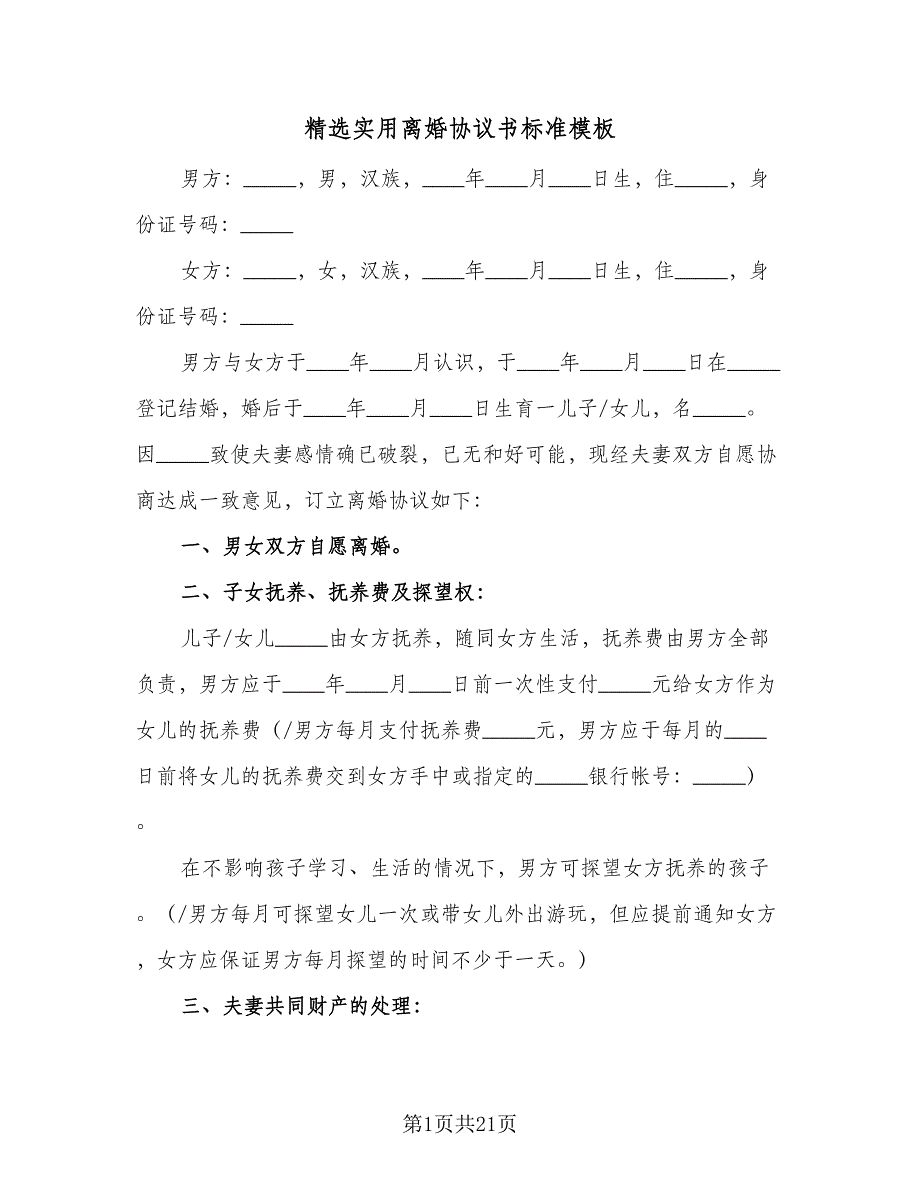 精选实用离婚协议书标准模板
男方：_____，男，汉族，____年____月____日生，住_____，身
份证号码：_____
女方：_____，女，汉族，____年____月____日生，住_____，身
份证号码：_____
男方与女方于____年____月认识，于____年____月____日在_____
登记结婚，婚后于____年____月____日生育一儿子/女儿，名_____。
因_____致使夫妻感情确已破裂，已无和好可能，现经夫妻双方自愿协
商达成一致意见，订立离婚协议如下：
一、男女双方自愿离婚。
二、子女抚养、抚养费及探望权：
儿子/女儿_____由女方抚养，随同女方生活，抚养费由男方全部
负责，男方应于____年____月____日前一次性支付_____元给女方作为
女儿的抚养费（/男方每月支付抚养费_____元，男方应于每月的____
日前将女儿的抚养费交到女方手中或指定的_____银行帐号：_____）
。
在不影响孩子学习、生活的情况下，男方可探望女方抚养的孩子
。（/男方每月可探望女儿一次或带女儿外出游玩，但应提前通知女方
，女方应保证男方每月探望的时间不少于一天。）
三、夫妻共同财产的处理：
第1页共21页